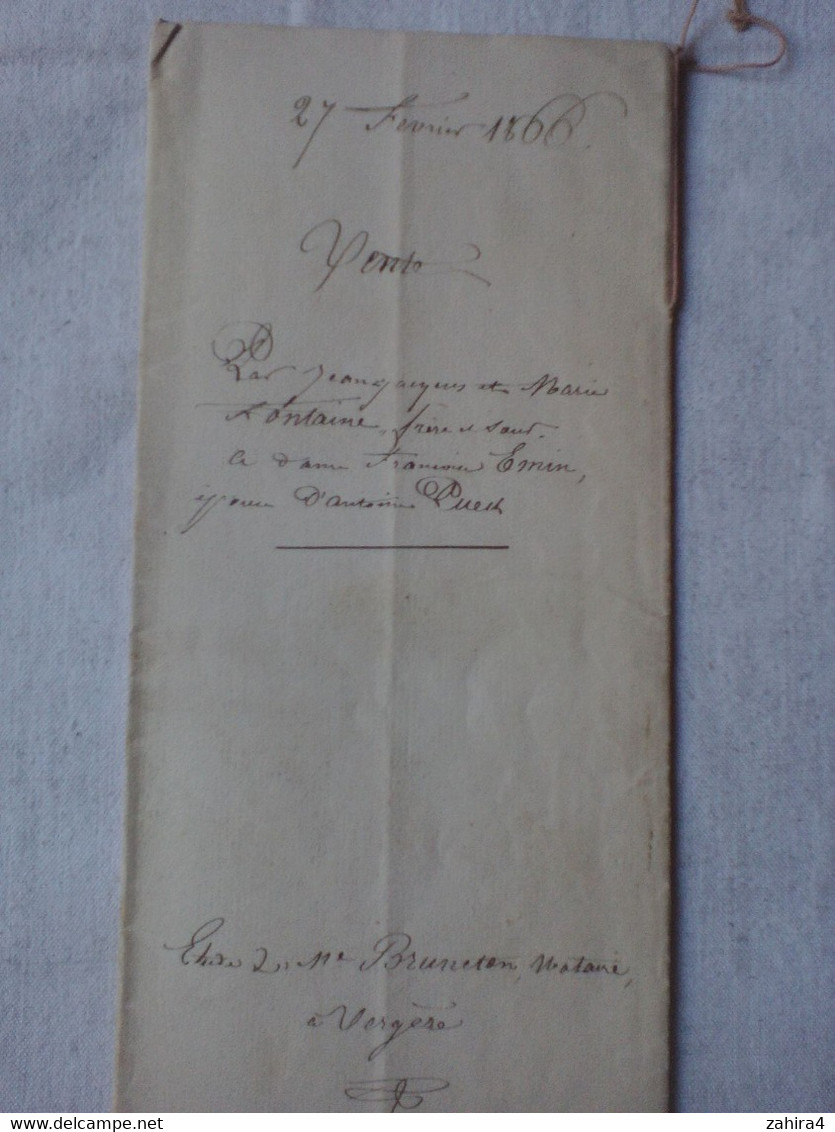 27 Fevrier 1866
Vente
Par Jean Jacques et Marie
Fontaine, frère et sœur.
a dame Francoise Emin,
épouse D'antoine Puech
Etude de Me Bruneton, Notaire,
a Vergèze
delcampe.net
zahira4